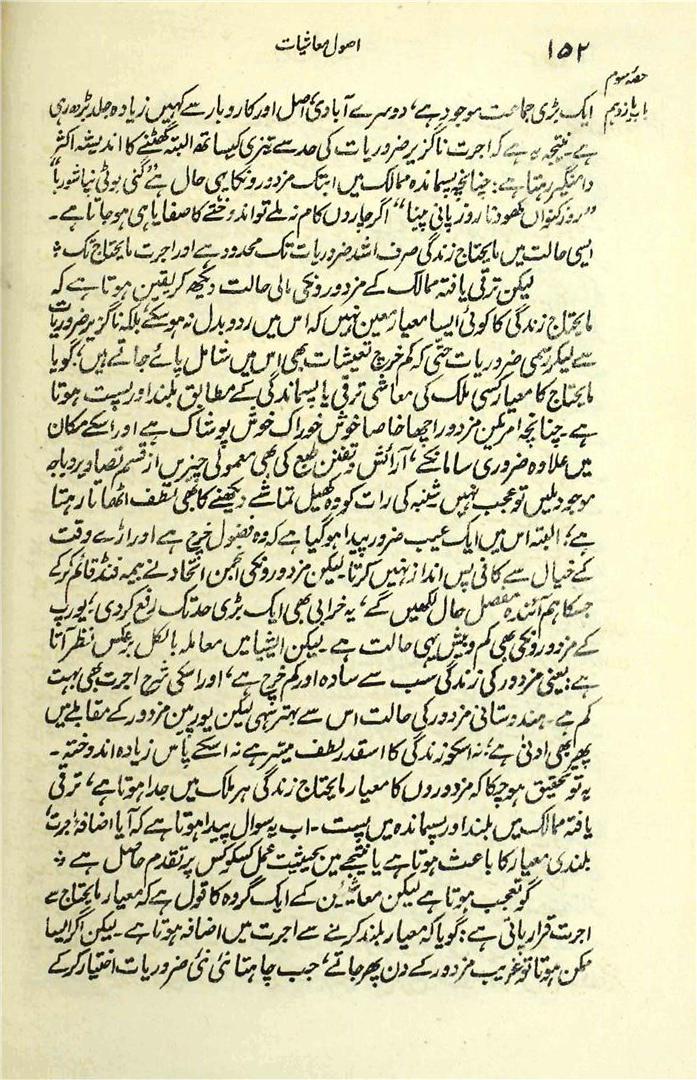 ۱۵۲
اصول معاشیات
حصۂ سوم
باب یازدہم
ایک بڑی جماعت موجود ہے، دوسرے آبادی، اصل اور کاروبار سے کہیں زیادہ جلد بڑھ رہی
ہے۔ نتیجہ یہ ہے کہ اجرت ناگزیر ضروریات کی حد سے تیزی کیساتھ البتہ گھٹنے کا اندیشہ اکثر
دامنگیر رہتا ہے: چنانچہ پسماندہ ممالک میں ابتک مزدورونکا یہی حال ہے ”گنی بوٹی نپا شوربا“
”روز کنواں کھودنا روز پانی پینا“ اگر چار دن کام نہ ملے تو اندوختے کا صفایا ہی ہو جاتا ہے۔
ایسی حالت میں مایحتاج زندگی صرف اشد ضروریات تک محدود ہے اور اجرت مایحتاج تک ؞
لیکن ترقی یافتہ ممالک کے مزدورونکی مالی حالت دیکھ کر یقین ہوتا ہے کہ
مایحتاج زندگی کا کوئی ایسا معیار معین نہیں کہ اس میں ردو بدل نہ ہوسکے بلکہ ناگزیر ضروریات
سے لیکر رسمی ضروریات حتّٰی کہ کم خرچ تعیشات بھی اس میں شامل پائے جاتے ہیں؛ گویا
مایحتاج کا معیار کسی ملک کی معاشی ترقی یا پسماندگی کے مطابق بلند اور پست ہوتا
ہے۔ چنانچہ امریکن مزدور اچھا خاصا خوش خوراک خوش پوشاک ہے اور اسکے مکان
میں علاوہ ضروری سامانکے، آرائش و تفنن طبع کی بھی معمولی چیزیں از قسم تصاویر و باجہ
موجود ملیں تو عجب نہیں شنبہ کی رات کو وہ کھیل تماشے دیکھنے کا بھی لطف اٹھاتا رہتا
ہے؛ البتہ اس میں ایک عیب ضرور پیدا ہوگیا ہے کہ وہ فضول خرچ ہے اور اڑے وقت
کے خیال سے کافی پس انداز نہیں کرتا۔ لیکن مزدورونکی انجمن اتحاد نے بیمہ فنڈ قائم کرکے
جسکا ہم آئندہ مفصل حال لکھیں گے، یہ خرابی بھی ایک بڑی حد تک رفع کردی؛ یورپ
کے مزدورونکی بھی کم و بیش یہی حالت ہے۔ لیکن ایشیا میں معاملہ بالکل برعکس نظر آتا
ہے: یعنی مزدور کی زندگی سب سے سادہ اور کم خرچ ہے، اور اسکی شرح اجرت بھی بہت
کم ہے۔ ہندوستانی مزدور کی حالت اس سے بہتر سہی لیکن یورپین مزدور کے مقابلے میں
پھر بھی ادنیٰ ہے؛ نہ اسکو زندگی کا اسقدر لطف میسر ہے نہ اسکے پاس زیادہ اندوختہ۔
یہ تو تحقیق ہوچکا کہ مزدوروں کا معیار مایحتاج زندگی ہر ملک میں جدا ہوتا ہے، ترقی
یافتہ ممالک میں بلند اور پسماندہ میں پست۔ اب یہ سوال پیدا ہوتا ہے کہ آیا اضافۂ اجرت،
بلندی معیار کا باعث ہوتا ہے یا نتیجے میں بحیثیت عمل کسکو کس پر تقدم حاصل ہے ؞
گو تعجب ہوتا ہے لیکن معاشئین کے ایک گروہ کا قول ہے کہ معیار مایحتاج سے
اجرت قرار پاتی ہے: گویا کہ معیار بلند کرنے سے اجرت میں اضافہ ہوتا ہے۔ لیکن اگر ایسا
ممکن ہوتا تو غریب مزدور کے دن پھر جاتے، جب چاہتا نئی نئی ضروریات اختیار کرکے